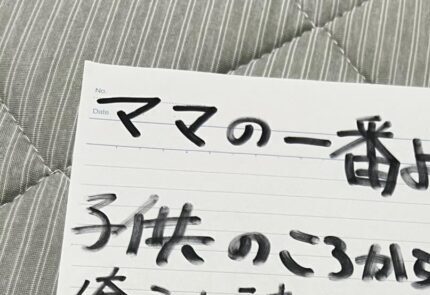 No.
Date
ママの一番よ
子供のころから
俺